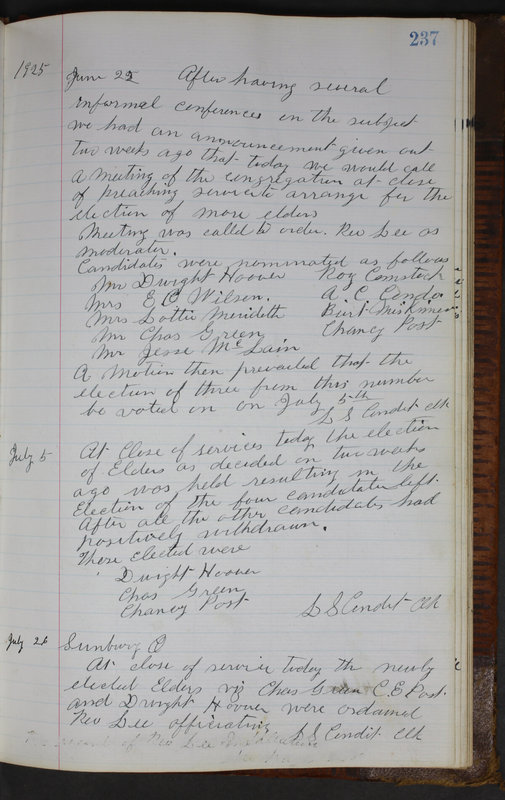 237
1925
June 22 After having several
informal conferences on the subject
we had an announcement given out
two weeks ago that today we would call
a meeting of the congregation at close
of preaching service to arrange for the
election of more elders
Meeting was called to order. Rev Lee as
moderator.
Candidates were nominated as follows
Mr Dwight Hoover Roy Comstock
Mrs E C Wilson. A. C. Condit
Mrs Lottie Meredith Burt
Mr Chas Green Chancy Post
Mr Jesse McLain
A Motion then prevailed that the
election of three from this number
be voted on on July 5th
L S Condit Clk
July 5 At Close of services today the election
of Elders as decided on two weeks
ago was held resulting in the
Election of the four candidates left.
After all the other candidates had
positively withdrawn.
Those elected were
Dwight Hoover
Chas Green
Chancy Post L S Condit Clk
July 26 Sunbury O
At close of service today the newly
elected Elders viz Chas Green C. E Post
and Dwight Hoover were ordained
Rev Lee officiating L S Condit Clk
of Rev Lee